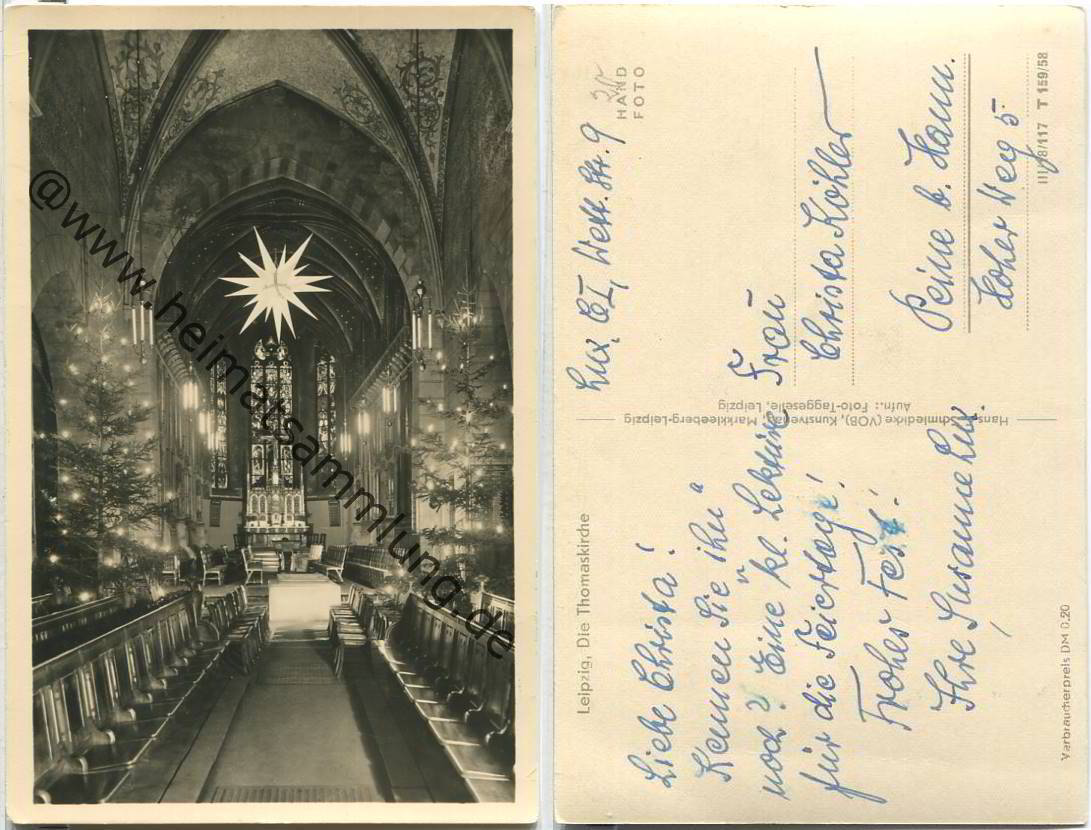 @www.heimatsammlung.de
Leipzig, Die Thomaskirche
Liebe Christa!
Kennen Sie „ihn“
noch? Eine kl. Lektüre
für die Feiertage!
Froher Fest!
Ihre Susanne Lux.
Verbraucherpreis DM 0,20
Hans Schmiedicke (VOB), Kunstverlag, Markkleeberg-Leipzig
Aufn.: Foto-Taggeselle, Leipzig
Lux, CI, Wett. Str. 9
20
HAND
FOTO
Frau
Christa Köhler
Peine b. Hann.
Hoher Weg 5
T 159/58